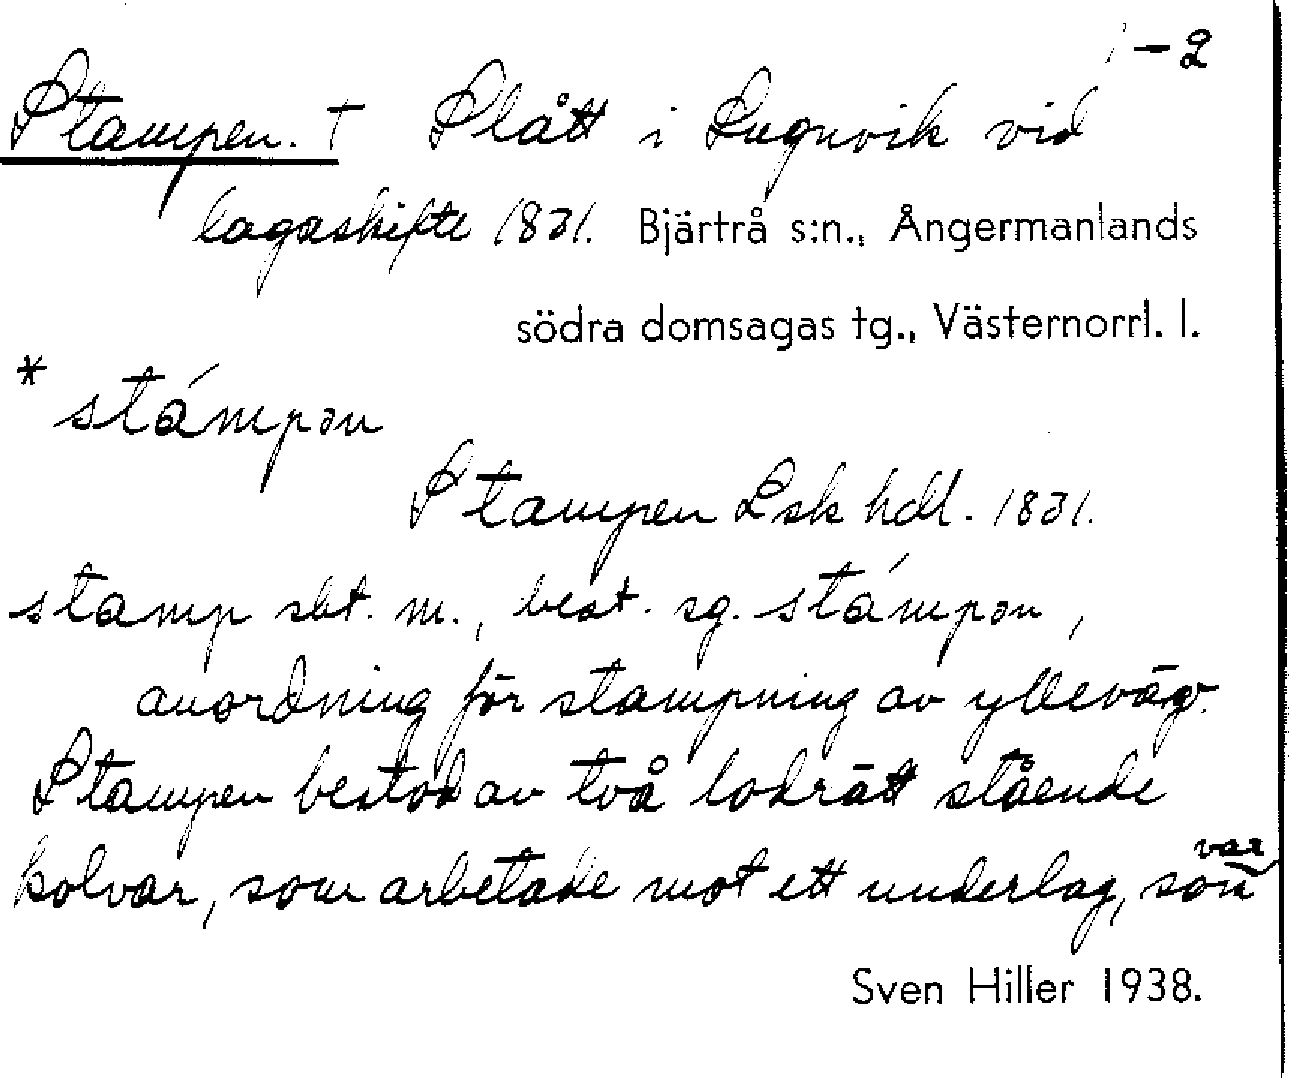 1-2
Stampen. † Slått i Lugnvik vid
lagaskifte 1831. Bjärtrå s:n., Ångermanlands
södra domsagas tg., Västernorrl. l.
* stámpən
Stampen Lsk hdl. 1831.
stamp sbt. m., best. sg. stámpən,
anordning för stampning av ylleväv.
Stampen bestod av två lodrätt stående
kolvar, som arbetade mot ett underlag, som var
Sven Hiller 1938.